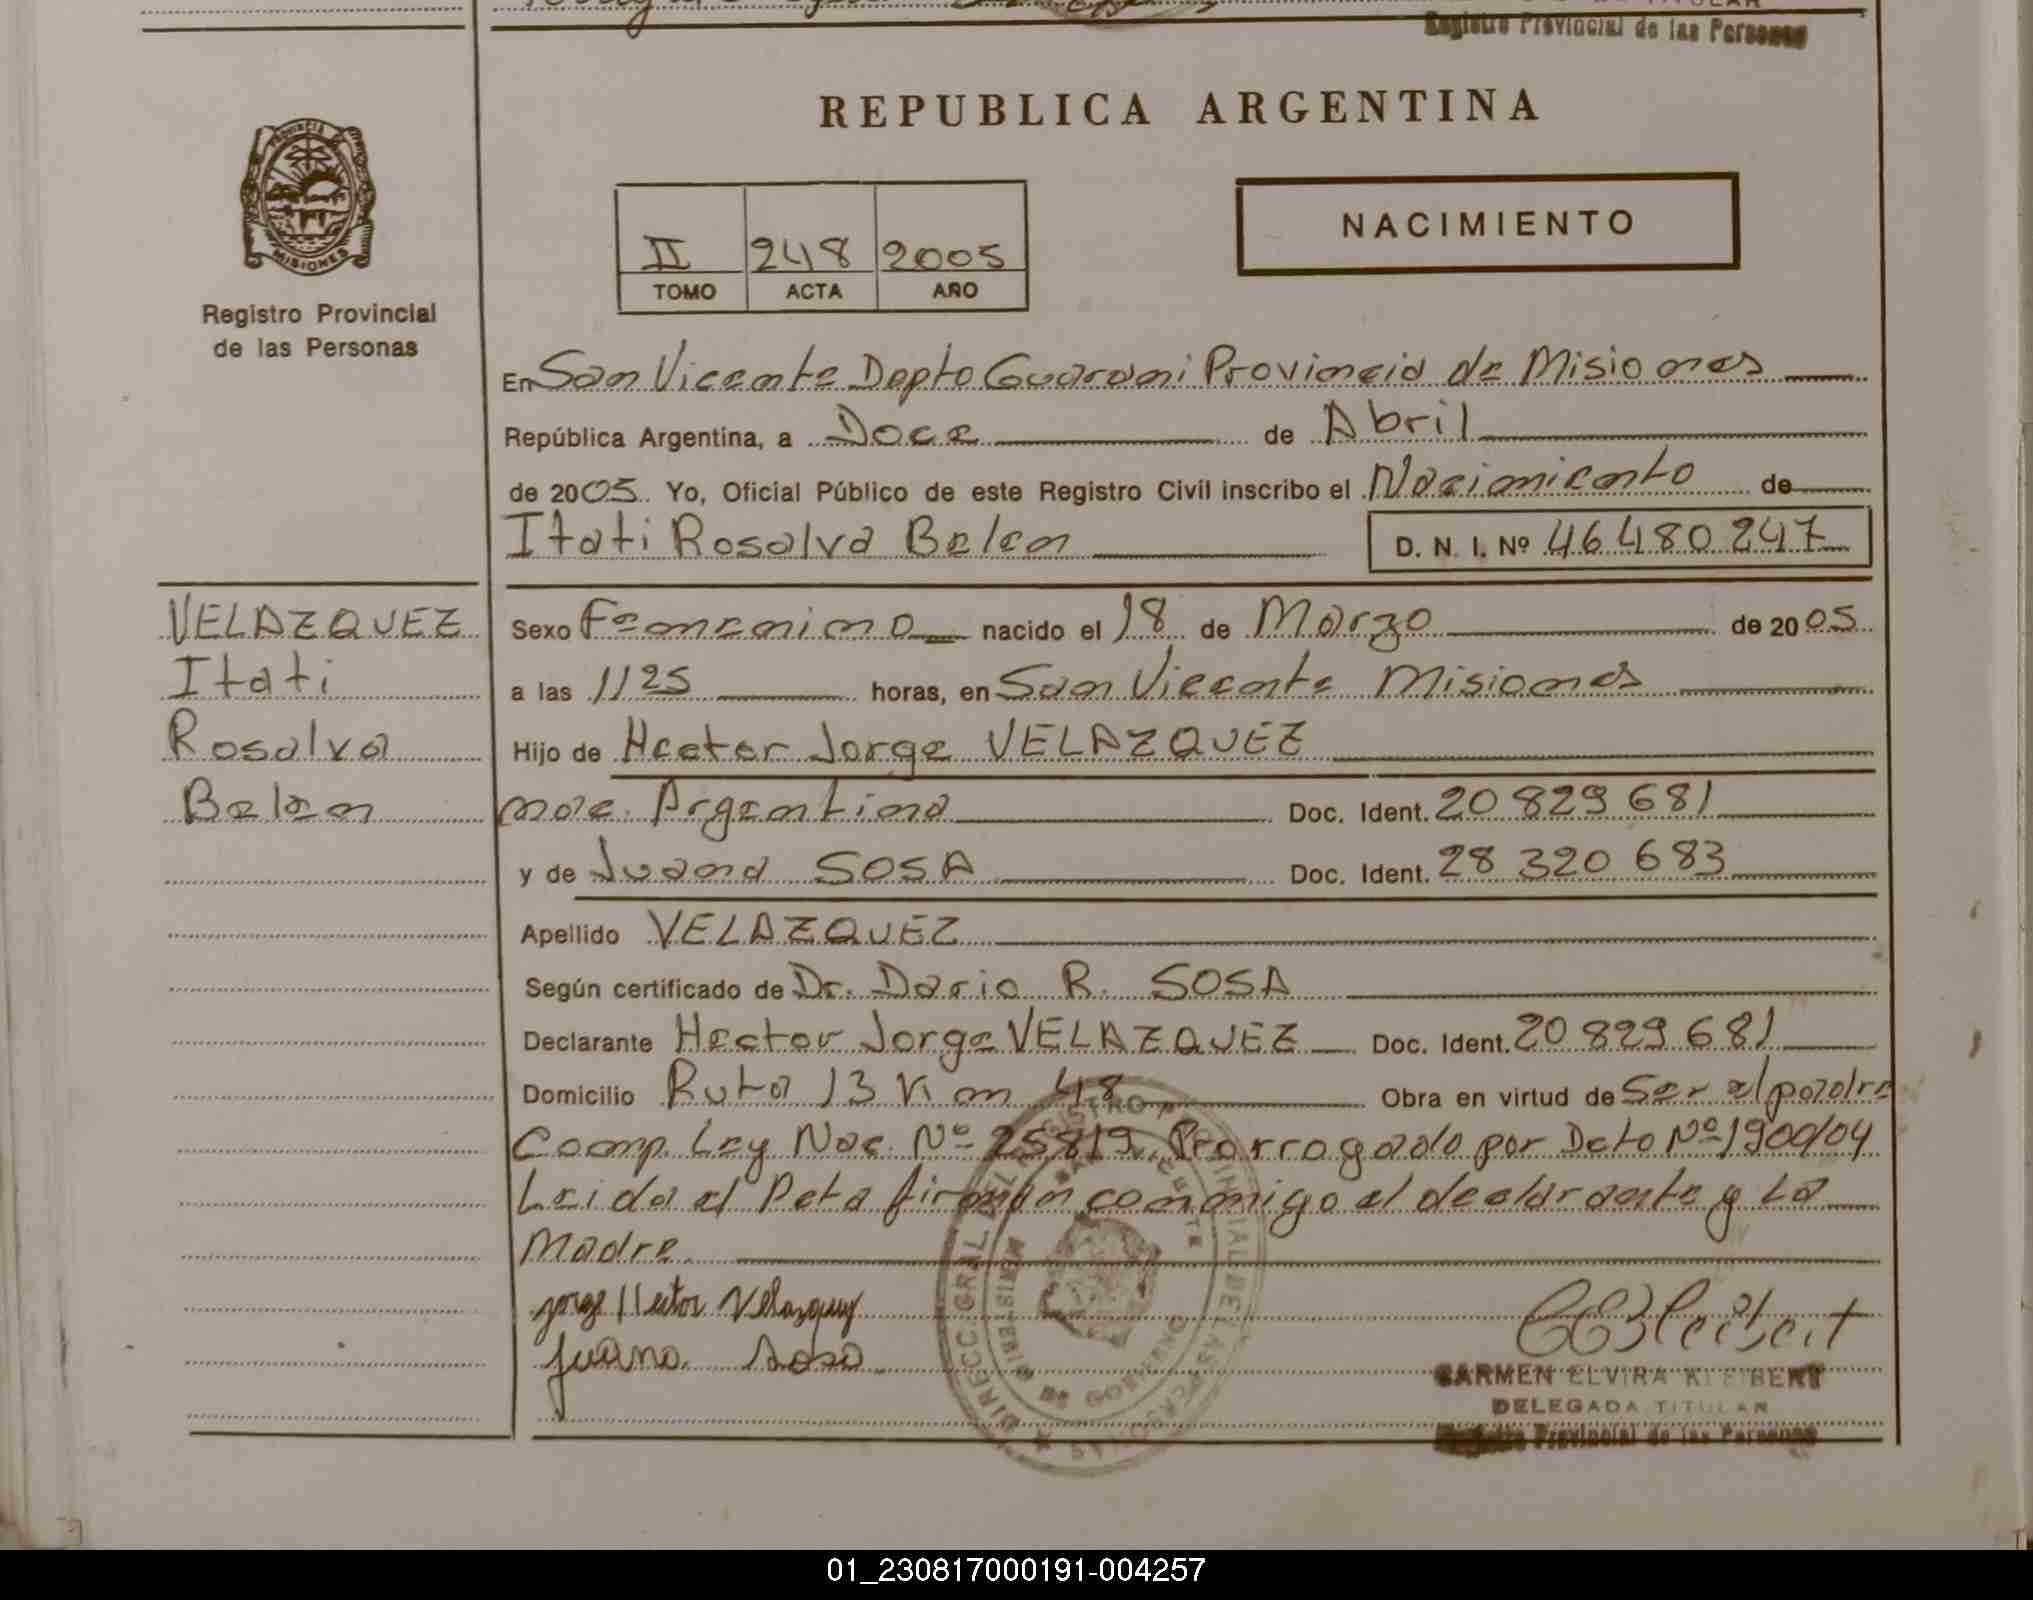 Registro Provincial de las Personas
REPUBLICA ARGENTINA
PROVINCIA DE
MISIONES
Registro Provincial
de las Personas
II 248 2005
TOMO ACTA AÑO
NACIMIENTO
En San Vicente Depto Guarani Provincia de Misiones
República Argentina, a Doce de Abril
de 2005. Yo, Oficial Público de este Registro Civil inscribo el Nacimiento de
Itati Rosalva Belen D. N. I. Nº 46.480.247
VELAZQUEZ
Itati
Rosalva
Belen
Sexo Femenino nacido el 18 de Marzo de 2005
a las 11 25 horas, en San Vicente Misiones
Hijo de Hector Jorge VELAZQUEZ
nac. Argentina Doc. Ident. 20 829 681
y de Juana SOSA Doc. Ident. 28 320 683
Apellido VELAZQUEZ
Según certificado de Dr. Dario R. SOSA
Declarante Hector Jorge VELAZQUEZ Doc. Ident. 20 829 681
Domicilio Ruta 13 Km 48 Obra en virtud de Ser el padre
Comp. Ley Nac. Nº 25819. Prorrogado por Dcto Nº 1900/04
Leida el Acta firman conmigo el declarante y La
Madre.
Jorge Hector Velazquez
Juana Sosa
CARMEN ELVIRA KLEIBERT
DELEGADA TITULAR
Registro Provincial de las Personas
01_230817000191-004257